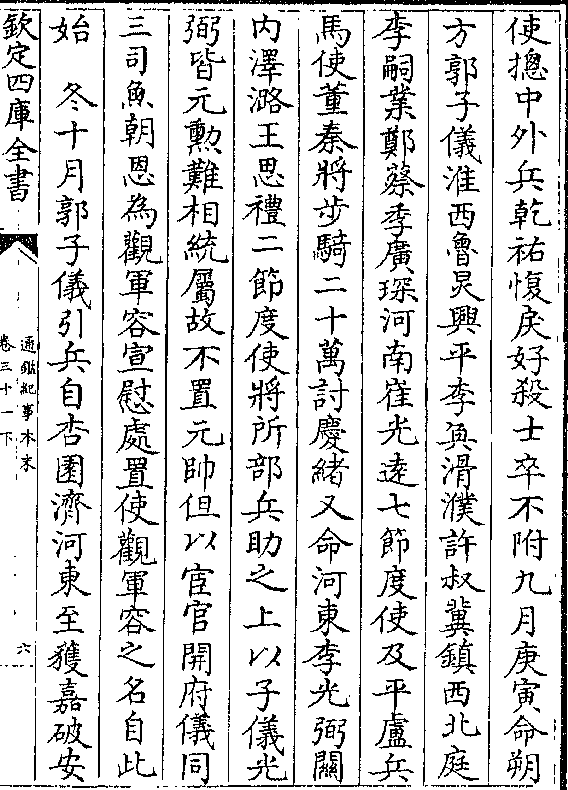 使摠中外兵乾祐愎戾好殺士卒不附九月庚寅命朔
方郭子儀淮西魯炅興平李奐滑濮許叔冀鎮西北庭
李嗣業鄭蔡季廣琛河南崔光逺七節度使及平盧兵
馬使董秦將步騎二十萬討慶緒又命河東李光弼關
内澤潞王思禮二節度使將所部兵助之上以子儀光
弼皆元勲難相統屬故不置元帥但以宦官開府儀同
三司魚朝恩為觀軍容宣慰處置使觀軍容之名自此
始　冬十月郭子儀引兵自杏園濟河東至獲嘉破安
欽定四庫全書
通鑑紀事本末
卷三十一下
六